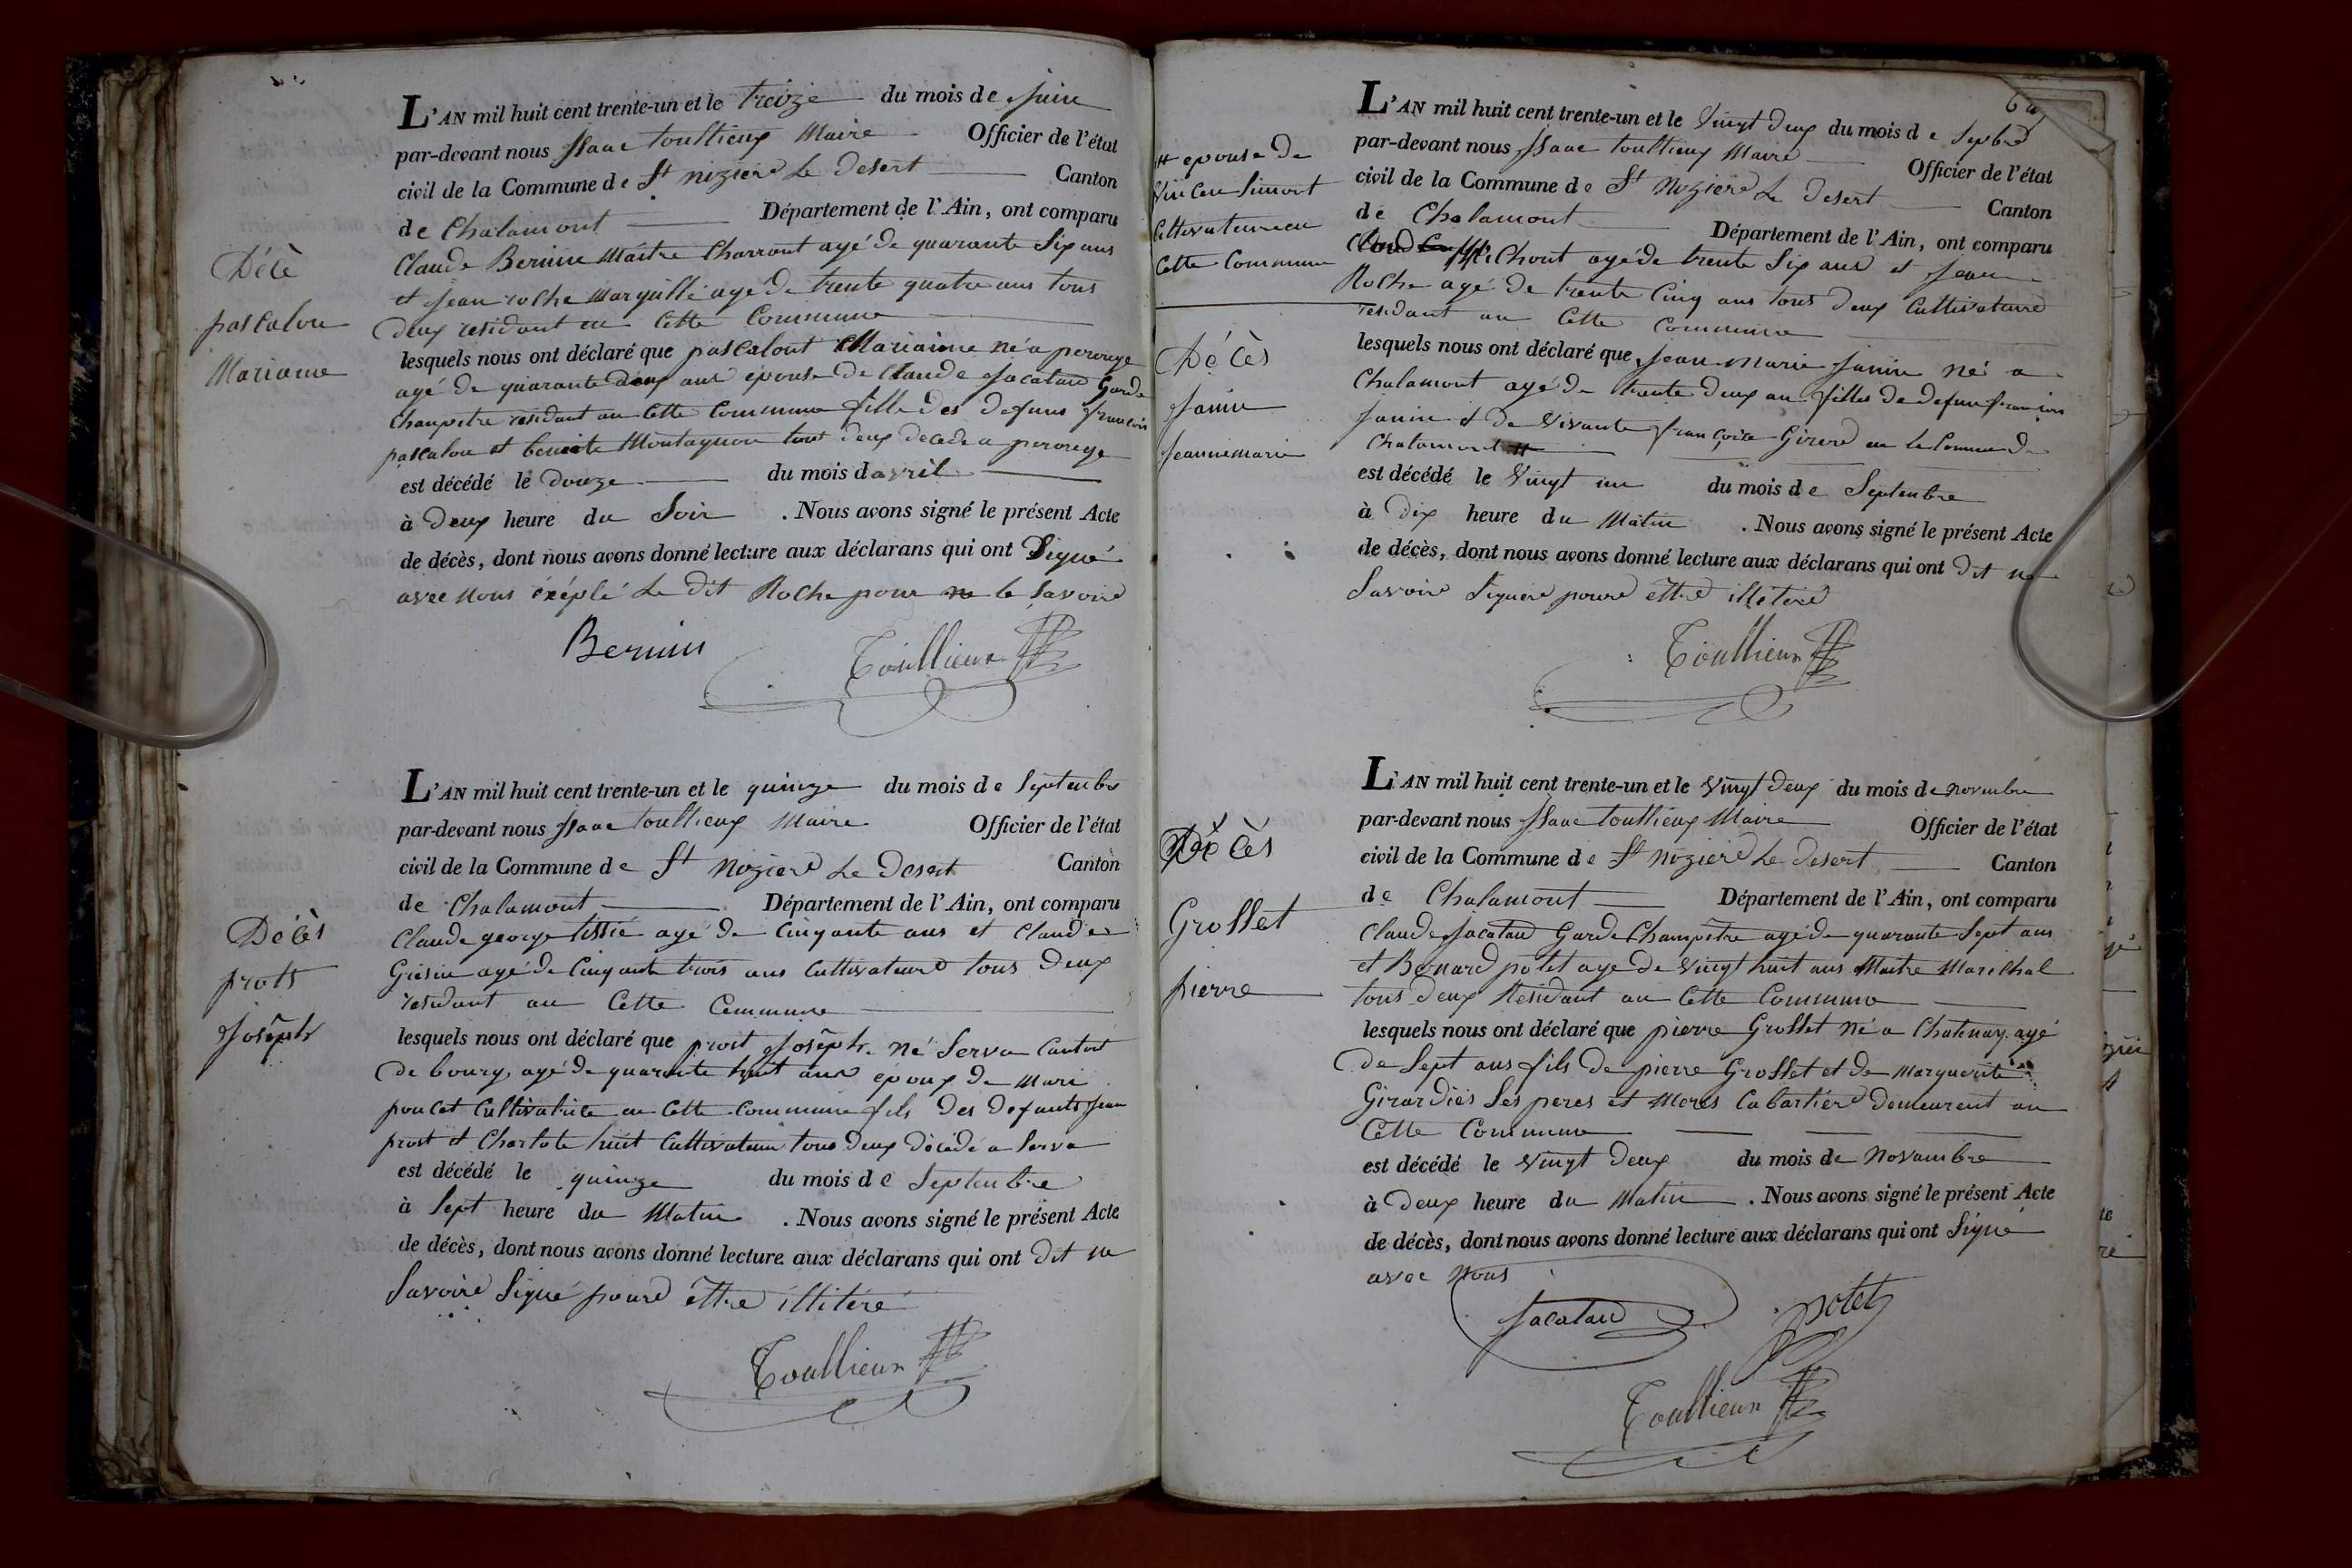 L'AN mil huit cent trente-un et le treize du mois de Juin
par-devant nous Isaac toullieux Maire Officier de l'état
civil de la Commune de St nizierd Le Desert Canton
de Chalamont Département de l'Ain, ont comparu
Claude Bernin Maitre Charront agé de quarante Six ans
et Jean roche Marguillé agé de trente quatre ans tous
deux residant en Cette Commune
Décè
pascalon
Mariame
lesquels nous ont déclaré que pascalont Mariaime né a perouge
agé de quarante deux ans epouse de Claude Jacatau Garde
Champetre residant an Cette Commune fille des defuns francois
pascalon et benoite Montagnon tout deux decede a perouge
est décédé le douze du mois d avril
à Deux heure du Soir . Nous avons signé le présent Acte
de décès, dont nous avons donné lecture aux déclarans qui ont Signé
avec nous éxéplé Le dit Roche pour ne le Savoird
Bernin Toullieux
L'AN mil huit cent trente-un et le quinze du mois de Septembre
par-devant nous Isaac toullieux Maire Officier de l'état
civil de la Commune de St Nizierd Le Desert Canton
de Chalamont Département de l'Ain, ont comparu
Claude george tissié agé de Cinquante ans et Claude
agé de Cinquante trois ans Cultivateurd tous Deux
residant an Cette Commune
Décès
prots
Joseph
lesquels nous ont déclaré que prost Joseph né Serva Cantont
de bourg, agé de quarante huit ans epoux de Marie
poncet Cultivatrice an Cette Commune fils des defunts Jean
prost et Charlote huit Cultivateur tous deux décédé a Serva
est décédé le quinze du mois de Septembre
à Sept heure du Matin . Nous avons signé le présent Acte
de décès, dont nous avons donné lecture aux déclarans qui ont Dit ne
Savoird Signé pourd ettre illitéré
Toullieux
L'AN mil huit cent trente-un et le Vingt deux du mois de Septbre
par-devant nous Isaac toullieux Maire Officier de l'état
civil de la Commune de St Nizierd Le Desert Canton
de Chalamont Département de l'Ain, ont comparu
Chont agé de trente Six ans et Jean
Roche agé de trente Cinq ans tous deux Cultivateurd
residant an Cette Commune
# epouse de
Vincen Simont
Cultivateur en
Cette Commune
Décès
Janin
Jeanne marie
lesquels nous ont déclaré que Jean Marie Janin né a
Chalamont agé de trente deux an filles de defun francois
Janin et de Vivante françoise Girerd en la Commune de
Chalamont #
est décédé le Vingt un du mois de Septembre
à Dix heure du Mâtin . Nous avons signé le présent Acte
de décès, dont nous avons donné lecture aux déclarans qui ont Dit ne
Savoird Signerd pourd ettred illéterd
Toullieux
L'AN mil huit cent trente-un et le Vingt deux du mois de novembre
par-devant nous Isaac toullieux Maire Officier de l'état
civil de la Commune de St nizierd Le Desert Canton
de Chalamont Département de l'Ain, ont comparu
Claude Jacatau Garde Champêtre agé de quarante Sept ans
et Bernard potet agé de Vingt huit ans Maitre Marechal
tous deux Residant an Cette Commune
Décès
Grosset
pierre
lesquels nous ont déclaré que pierre Grosset né a Chatenay agé
de Sept ans fils de pierre Grosset et de Marguerite
Girardiés Ses peres et Meres Cabartierd demeurent an
Cette Commune
est décédé le Vingt deux du mois de Novambre
à Deux heure du Matin . Nous avons signé le présent Acte
de décès, dont nous avons donné lecture aux déclarans qui ont Signé
avec nous
Jacatau potet
Toullieux